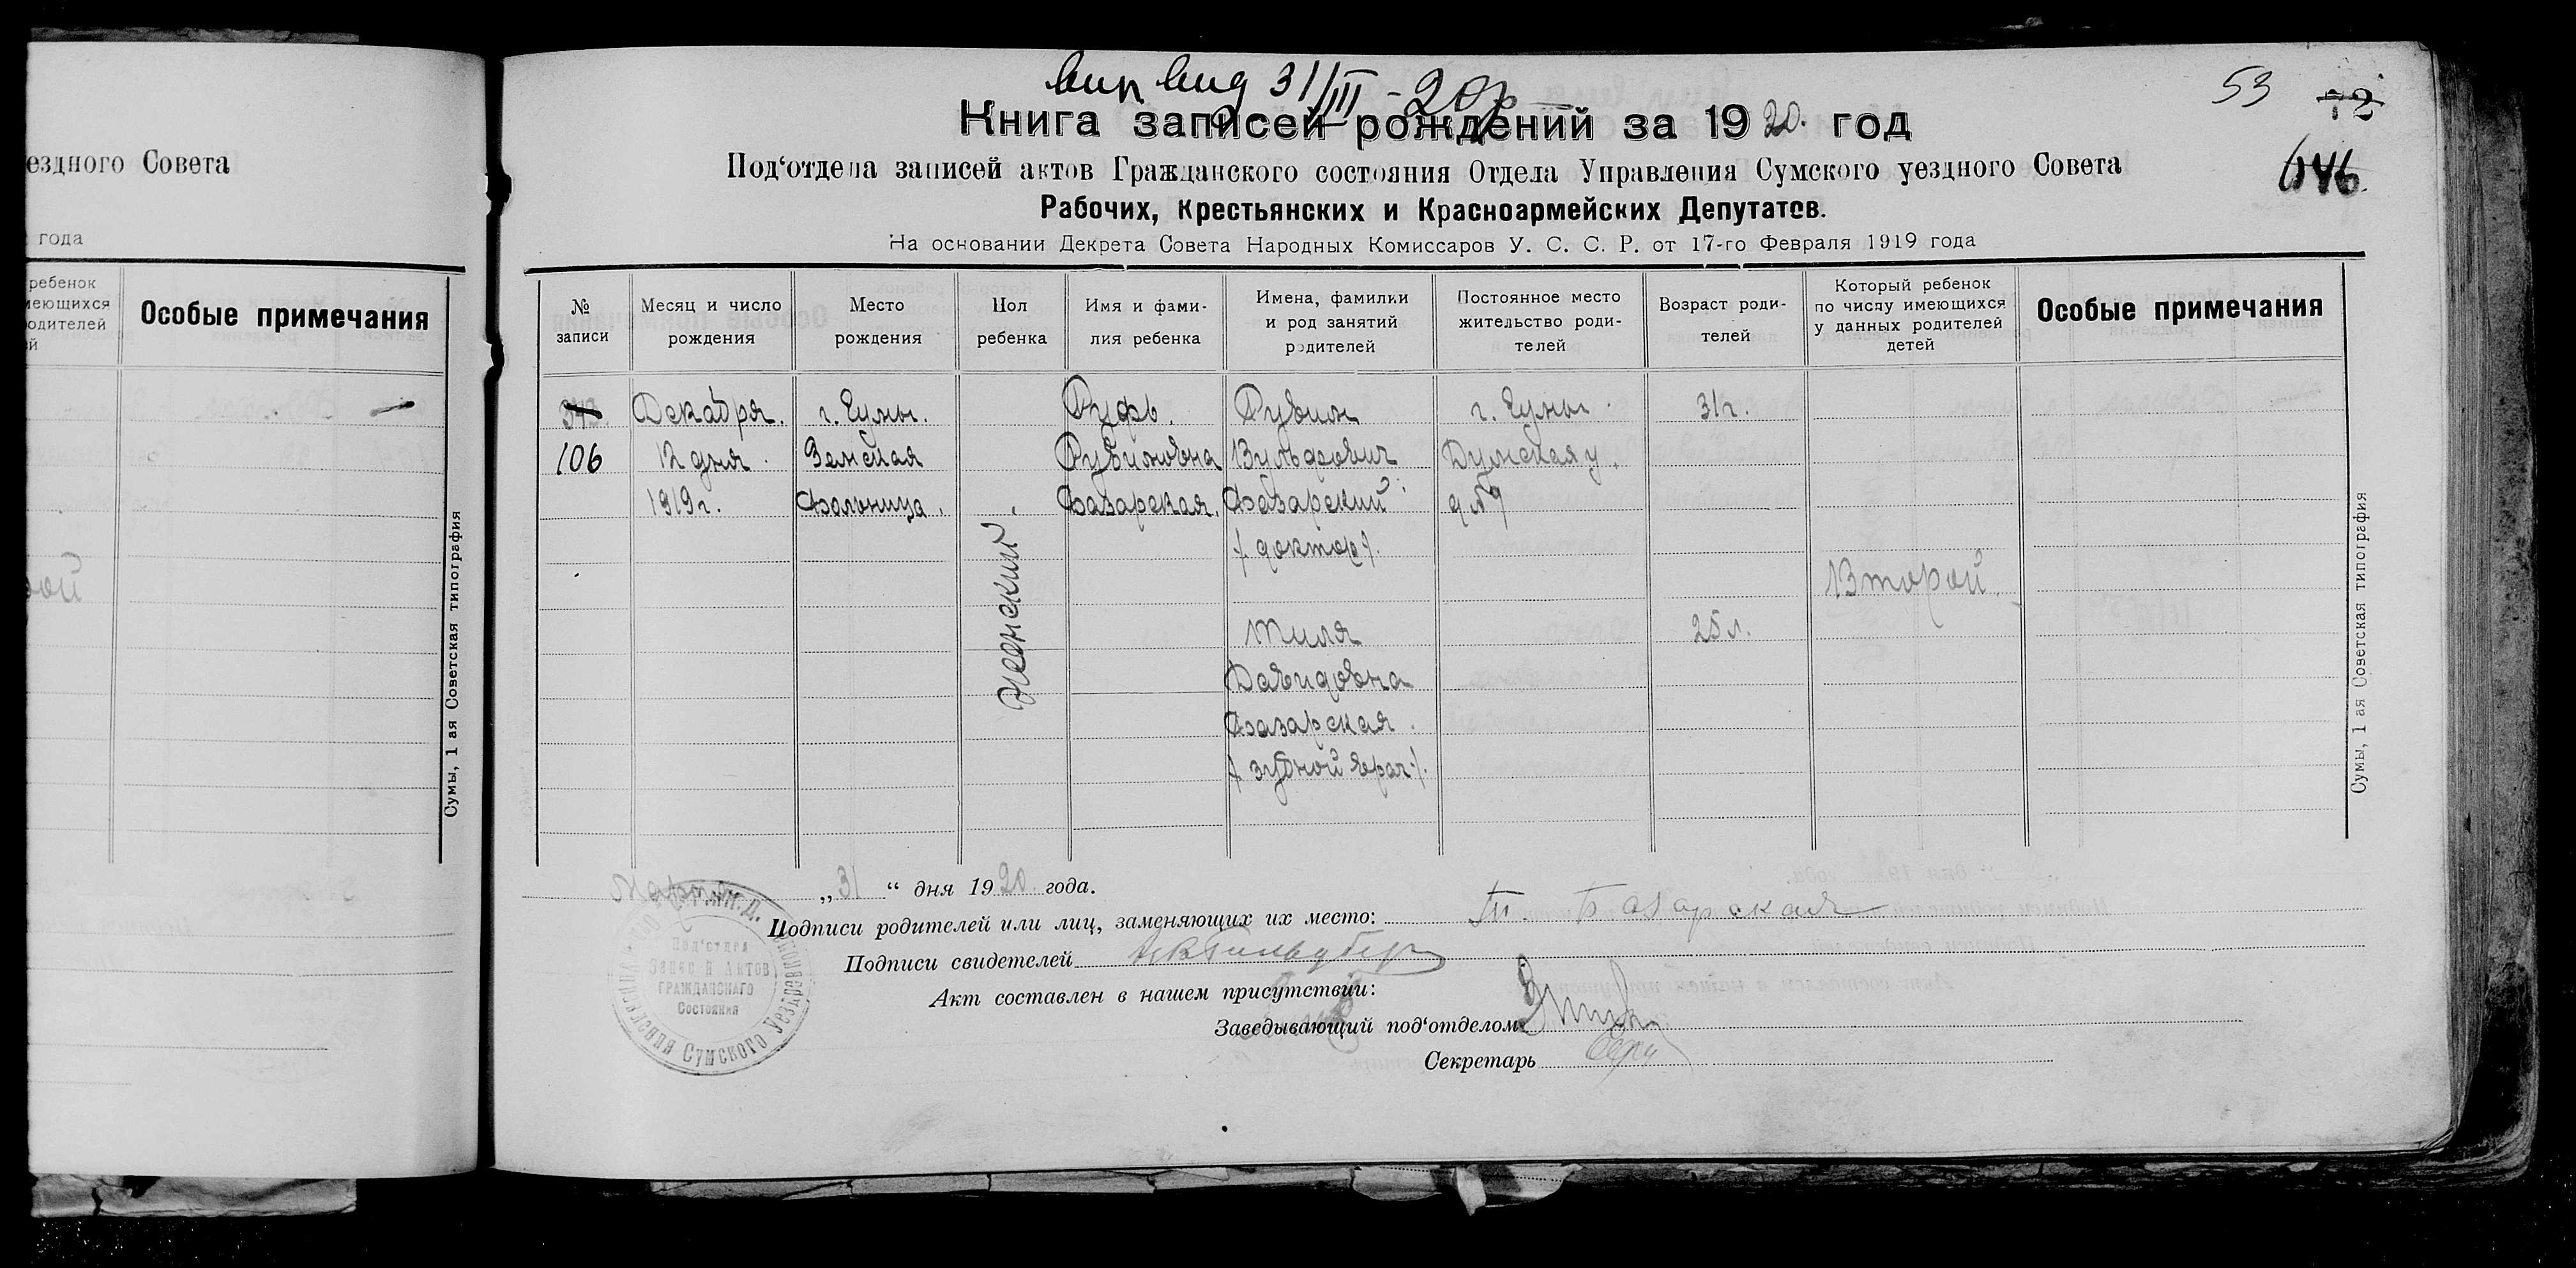 ездного Совета
года
ребенок
меющихся
одителей
й
Особые примечания
ой
Сумы, 1 ая Советская типография
вид 31/III - 20 г.
53
72
646
Книга записей рождений за 1920. год
Под‘отдела записей актов Гражданского состояния Отдела Управления Сумского уездного Совета
Рабочих, Крестьянских и Красноармейских Депутатов.
На основании Декрета Совета Народных Комиссаров У. С. С. Р. от 17-го Февраля 1919 года
№ записи
Месяц и число рождения
Место рождения
Пол ребенка
Имя и фами-
лия ребенка
Имена, фамилии
и род занятий
родителей
Постоянное место
жительство роди-
телей
Возраст роди-
телей
Который ребенок
по числу имеющихся
у данных родителей
детей
Особые примечания
343.
106
Декабря.
12 дня.
1919 г.
г. Сумы.
Земская
больница.
Женский
Руфь.
Рувимовна
Базарская.
Рувим
Вульфович
Базарский
/доктор/.
Тиля
Давидовна
Базарская.
/зубной врач/.
г. Сумы.
Думская у.
д № 9
31 г.
25 л.
Второй.
Сумы, 1 ая Советская типография
Марта „31“ дня 1920 года.
Подписи родителей или лиц, заменяющих их место: Т. Базарская
Подписи свидетелей
Акт составлен в нашем присутствии:
Заведывающий под‘отделом
Секретарь
Под‘отдел
Запис-й Актов
Гражданскаго
Состояния
Управления Сумского Уезд